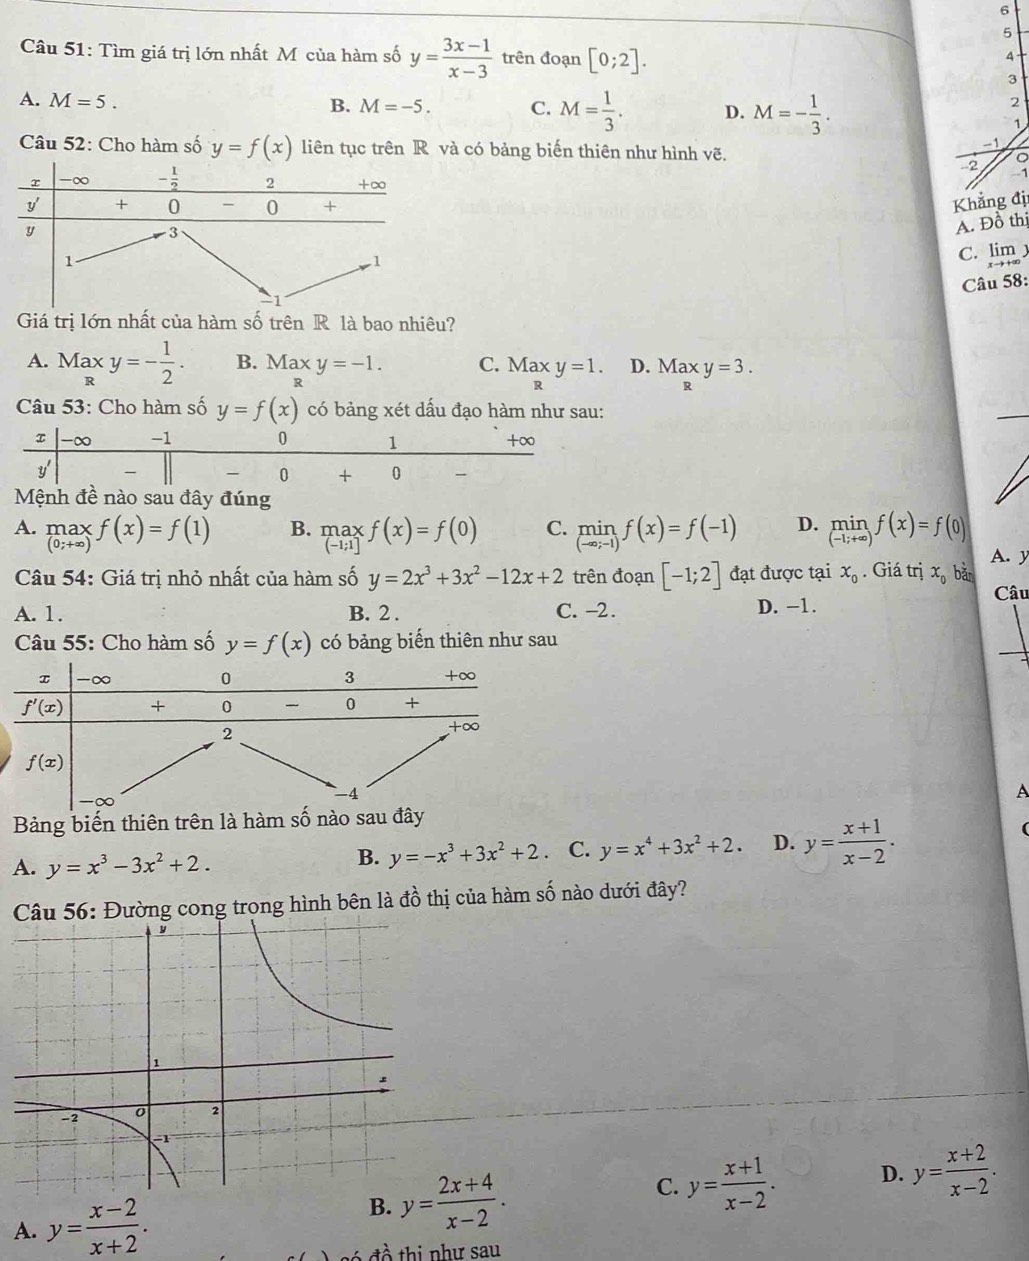 Câu 51: Tìm giá trị lớn nhất M của hàm số y = (3x−1)/(x−3) trên đoạn [0;2].
A. M = 5. B. M = −5. C. M = 1/3. D. M = −1/3.
Câu 52: Cho hàm số y = f(x) liên tục trên ℝ và có bảng biến thiên như hình vẽ.
x −∞ −1/2 2 +∞
y′ + 0 − 0 +
y 3
1 1
−1
Giá trị lớn nhất của hàm số trên ℝ là bao nhiêu?
A. Max_ℝ y = −1/2. B. Max_ℝ y = −1. C. Max_ℝ y = 1. D. Max_ℝ y = 3.
Câu 53: Cho hàm số y = f(x) có bảng xét dấu đạo hàm như sau:
x −∞ −1 0 1 +∞
y′ − || − 0 + 0 −
Mệnh đề nào sau đây đúng
A. max_(0;+∞) f(x) = f(1) B. max_(−1;1] f(x) = f(0) C. min_(−∞;−1) f(x) = f(−1) D. min_(−1;+∞) f(x) = f(0)
Câu 54: Giá trị nhỏ nhất của hàm số y = 2x³ + 3x² − 12x + 2 trên đoạn [−1;2] đạt được tại x₀. Giá trị x₀ bằn
A. 1. B. 2. C. −2. D. −1.
Câu 55: Cho hàm số y = f(x) có bảng biến thiên như sau
x −∞ 0 3 +∞
f′(x) + 0 − 0 +
2 +∞
f(x)
−∞ −4
Bảng biến thiên trên là hàm số nào sau đây
A. y = x³ − 3x² + 2. B. y = −x³ + 3x² + 2. C. y = x⁴ + 3x² + 2. D. y = (x+1)/(x−2).
Câu 56: Đường cong trong hình bên là đồ thị của hàm số nào dưới đây?
y
1
x
−2 O 2
−1
A. y = (x−2)/(x+2). B. y = (2x+4)/(x−2). C. y = (x+1)/(x−2). D. y = (x+2)/(x−2).
có đồ thị như sau
6
5
4
3
2
1
−1
−2 O
−1
Khẳng đị
A. Đồ thị
C. lim_(x→+∞) y
Câu 58:
A. y
Câu
A